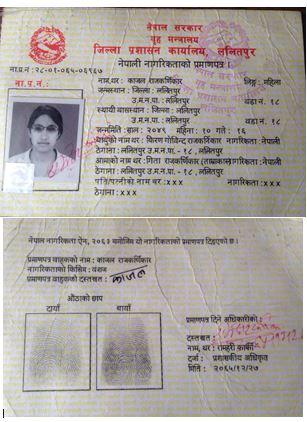 नेपाल सरकार
गृह मन्त्रालय
जिल्ला प्रशासन कार्यालय, ललितपुर
नेपाली नागरिकताको प्रमाणपत्र
ना.प्र.नं : २८-०१-०६५-०६९६७
ना.प्र.नं.:
नाम, थर : काजल राजकर्णिकार लिङ्ग : महिला
जन्मस्थान : जिल्ला : ललितपुर
उ.म.न.पा. : ललितपुर वडा नं. १८
स्थायी बासस्थान : जिल्ला : ललितपुर
उ.म.न.पा. : ललितपुर वडा नं. १८
जन्ममिति : साल : २०४९ महिना : १० गते : १६
बाबुको नाम थर : किरण गोविन्द राजकर्णिकार नागरिकता : नेपाली
ठेगाना : ललितपुर उ.म.न.पा. - १८, ललितपुर
आमाको नाम थर : गिता राजकर्णिकार नागरिकता : नेपाली
ठेगाना : ललितपुर उ.म.न.पा. - १८, ललितपुर
पति/पत्नीको नाम थर : xxx नागरिकता : xxx
ठेगाना : xxx
नेपाल नागरिकता ऐन, २०६३ बमोजिम यो नागरिकताको प्रमाणपत्र दिइएको छ।
प्रमाणपत्र वाहकको नाम : काजल राजकर्णिकार
नागरिकताको किसिम : वंशज
प्रमाणपत्र वाहकको दस्तखत : काजल
औंठाको छाप
दायाँ बायाँ
प्रमाणपत्र दिने अधिकारीको :
दस्तखत :
नाम, थर : रामहरी कार्की
दर्जा : प्रशासकीय अधिकृत
मिति : २०६५/१२/२७